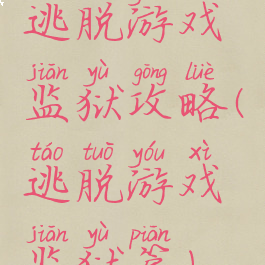 逃脱游戏
jiān yù gōng lüè
监狱攻略(
táo tuō yóu xì
逃脱游戏
jiān yù piān
监狱篇)